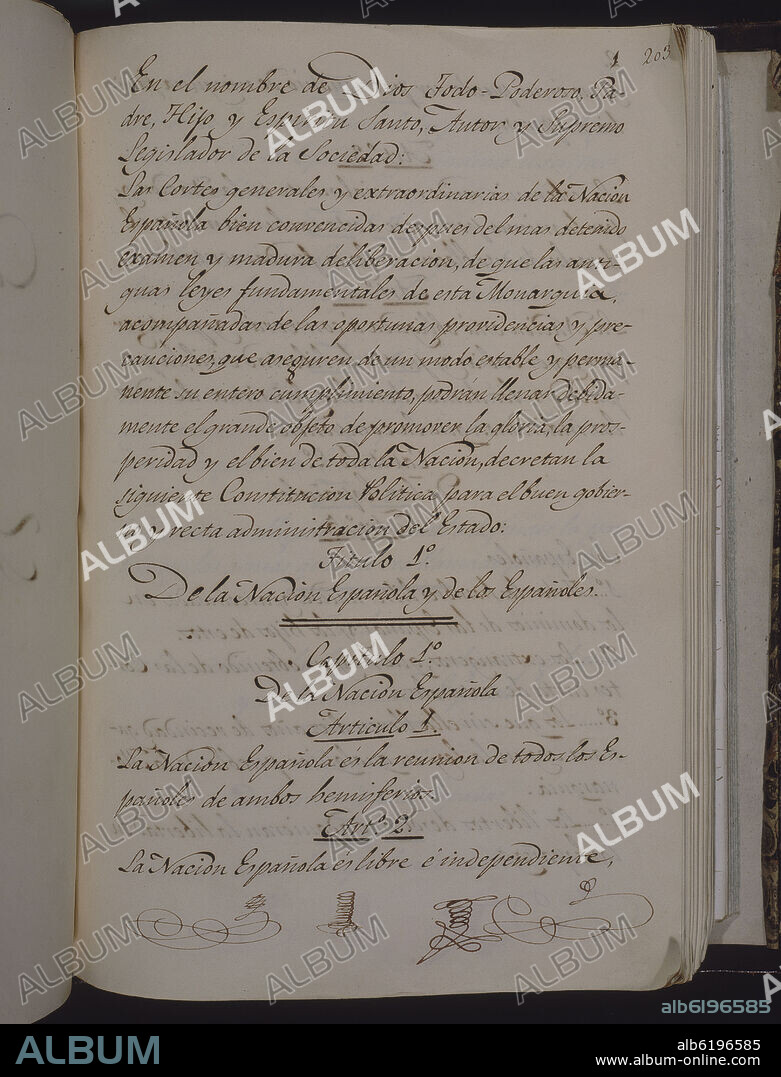 1 203
En el nombre de Dios Todo-Poderoso, Pa-
dre, Hijo y Espiritu Santo, Autor y Supremo
Legislador de la Sociedad:
Las Cortes generales y extraordinarias de la Nacion
Española bien convencidas despues del mas detenido
examen y madura deliberacion, de que las anti-
guas leyes fundamentales de esta Monarquia,
acompañadas de las oportunas providencias y pre-
cauciones, que aseguren de un modo estable y perma-
nente su entero cumplimiento, podran llenar debida-
mente el grande objeto de promover la gloria, la pros-
peridad y el bien de toda la Nacion, decretan la
siguiente Constitucion Politica para el buen gobier-
no y recta administracion del Estado:
Titulo 1º.
De la Nacion Española y de los Españoles.
Capitulo 1º.
De la Nacion Española
Articulo 1.
La Nacion Española és la reunion de todos los Es-
pañoles de ambos hemisferios.
Artº. 2
La Nacion Española és libre é independiente,
ALBUM
alb6196585
ALBUM
alb6196585
www.album-online.com